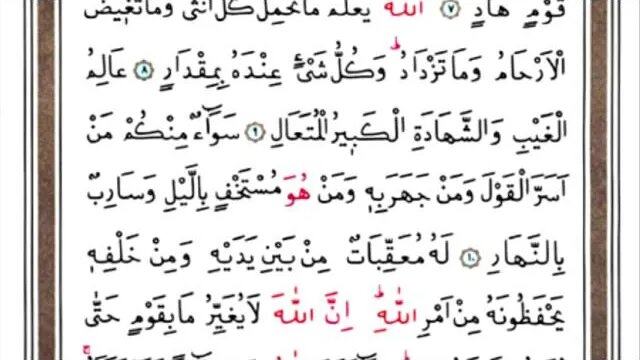 قَوْمٍ هَادٍ ﴿٧﴾ اَللّٰهُ يَعْلَمُ مَا تَحْمِلُ كُلُّ اُنْثٰى وَمَا تَغ۪يضُ
الْاَرْحَامُ وَمَا تَزْدَادُۜ وَكُلُّ شَيْءٍ عِنْدَهُ بِمِقْدَارٍ ﴿٨﴾ عَالِمُ
الْغَيْبِ وَالشَّهَادَةِ الْكَب۪يرُ الْمُتَعَالِ ﴿٩﴾ سَوَٓاءٌ مِنْكُمْ مَنْ
اَسَرَّ الْقَوْلَ وَمَنْ جَهَرَ بِه۪ وَمَنْ هُوَ مُسْتَخْفٍ بِالَّيْلِ وَسَارِبٌ
بِالنَّهَارِ ﴿١٠﴾ لَهُ مُعَقِّبَاتٌ مِنْ بَيْنِ يَدَيْهِ وَمِنْ خَلْفِه۪
يَحْفَظُونَهُ مِنْ اَمْرِ اللّٰهِۜ اِنَّ اللّٰهَ لَا يُغَيِّرُ مَا بِقَوْمٍ حَتّٰى